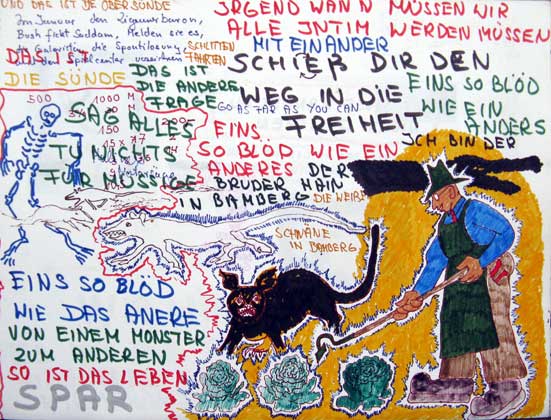 UND DAS IST DE OBERSÜNDE
Im Januar den Zigeunerbaron,
Bush fickt Saddam, Melden sie es,
SCHLITTEN
FAHRTEN
DAS IST
DIE SÜNDE
DAS IST
DIE ANDERE
FRAGE
JRGEND WANN MÜSSEN WIR
ALLE JNTIM WERDEN MÜSSEN
MIT EINANDER
SCHIEß DIR DEN
WEG IN DIE
FREIHEIT
GO AS FAR AS YOU CAN
EINS SO BLÖD
WIE EIN
ANDERS
JCH BIN DER
500 1000 M
SAG ALLES
150 200
15 x 77
TU NICHTS
FÜR MÜSSIGE
EINS
SO BLÖD WIE EIN
ANDERES DER
BRUDER MAIN
IN BAMBERG
DIE WEIßE
SCHWÄNE
IN BAMBERG
EINS SO BLÖD
WIE DAS ANERE
VON EINEM MONSTER
ZUM ANDEREN
SO IST DAS LEBEN
SPAR